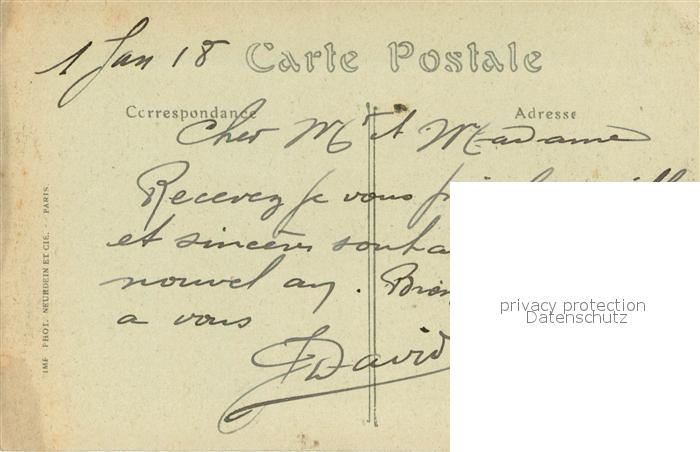 1 Jan 18 Carte Postale
Correspondance Adresse
Cher Mr et Madame
Recevez je vous
et sincères
nouvel an. Bien
a vous
David
IMP. PHOT. NEURDEIN ET CIE. - PARIS.
privacy protection
Datenschutz